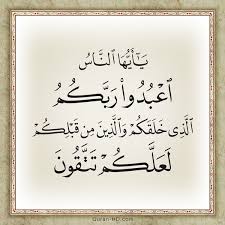 يَٰٓأَيُّهَا ٱلنَّاسُ
ٱعْبُدُوا۟ رَبَّكُمُ
ٱلَّذِى خَلَقَكُمْ وَٱلَّذِينَ مِن قَبْلِكُمْ
لَعَلَّكُمْ تَتَّقُونَ
Quran-HD.com